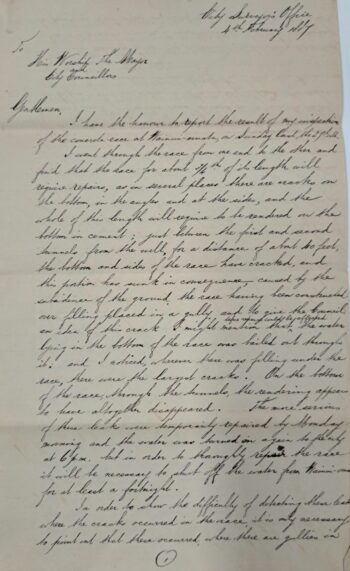 City Surveyor's Office
4th February 1887
To
His Worship The Mayor
and
City Councillors
Gentlemen,
I have the honour to report the result of my inspection
of the concrete race at Wainui-omata, on Sunday last, the
I went through the race from one end to the other and
find that the race for about of its length will
require repairs, as in several places there are cracks on
the bottom, in the angles and at the sides, and the
whole of this length will require to be rendered on the
bottom in cement; just between the first and second
tunnels from the well, for a distance of about feet,
the bottom and sides of the race have cracked, and
this portion has sunk in consequence, caused by the
subsidence of the ground, the race having been constructed
over filling placed in a gully, and to give the Council
an idea of this crack I might mention that the water
lying in the bottom of the race was bailed out through
it; and I noticed, wherever there was filling under the
race, there were the largest cracks. On the bottom
of the race, through the tunnels, the rendering appears
to have altogether disappeared. The more serious
of these leaks were temporarily repaired by Monday
morning and the water was turned on again to the city
at 6 p.m. but in order to thoroughly repair the race
it will be necessary to shut off the water from Wainui-omata
for at least a fortnight.
In order to show the difficulty of detecting these leaks
where the cracks occurred in the race, it is only necessary
to point out that these occurred, where there are gullies in
1